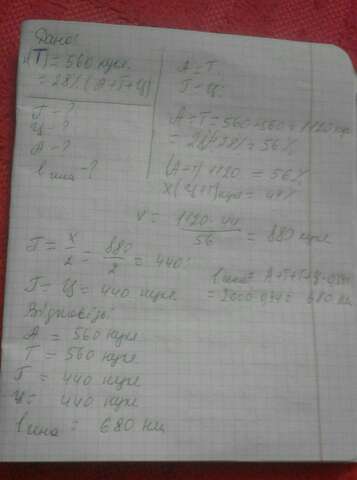 Дано:
(Т) = 560 нукл.
= 28% (А+Т+Ц)
Г - ?
Ц - ?
А - ?
l гена - ?
А = Т,
Г = Ц.
А = Т = 560+560 = 1120 нук
= 28+28% = 56%
(А+Т) 1120 = 56%
Х (Ц+Г) нукл = 44%
х = 1120 · 44 / 56 = 880 нукл
Г = х/2 = 880/2 = 440
Г = Ц = 440 нукл
l гена = А+Т+Г+Ц · 0,34
= 2000 · 0,34 = 680 нм
Відповідь:
А = 560 нукл
Т = 560 нукл
Г = 440 нукл
Ц = 440 нукл
l гена = 680 нм